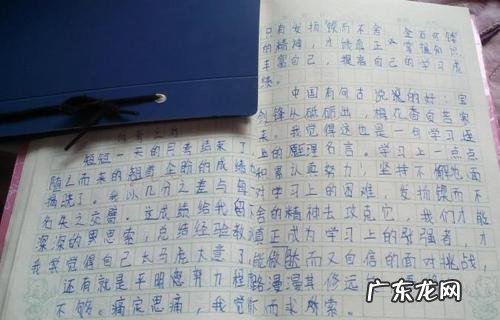 短短一天的月考结束了,
随之而来的期盼的成绩
搞洗了。我以几分之差与
名失之交臂。这成绩给我留
深深的思索,总结经验教训
我觉得自己太马虎大意了,
还有就是平时努力程
不够。痛定思痛,我觉
只有发扬锲而不舍、金石可镂
的精神,才能真正掌握知识,
丰富自己,提高自己的学习成
绩。
中国有句古说说的好:宝
剑锋从砥砺出,梅花香自苦寒
来。我觉得这也是一句学习道
上的原理名言。学习上一点点
积累认真努力,坚持不懈地面
对学习上的困难,发扬锲而不
舍的精神去攻克它,我们才能
真正成为学习上的强者,才
能傲然而又自信的面对挑战,
路漫漫其修远
而求所索。
广东龙网